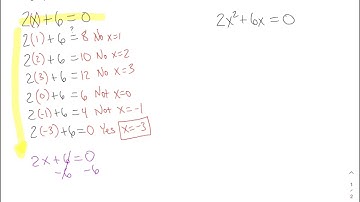 2(x)+6=0
2(1)+6≟8 No x=1
2(2)+6=10 No x=2
2(3)+6=12 No x=3
2(0)+6=6 Not x=0
2(-1)+6=4 Not x=-1
2(-3)+6=0 Yes x=-3
2x+6=0
-6 -6
2x²+6x=0
1/2